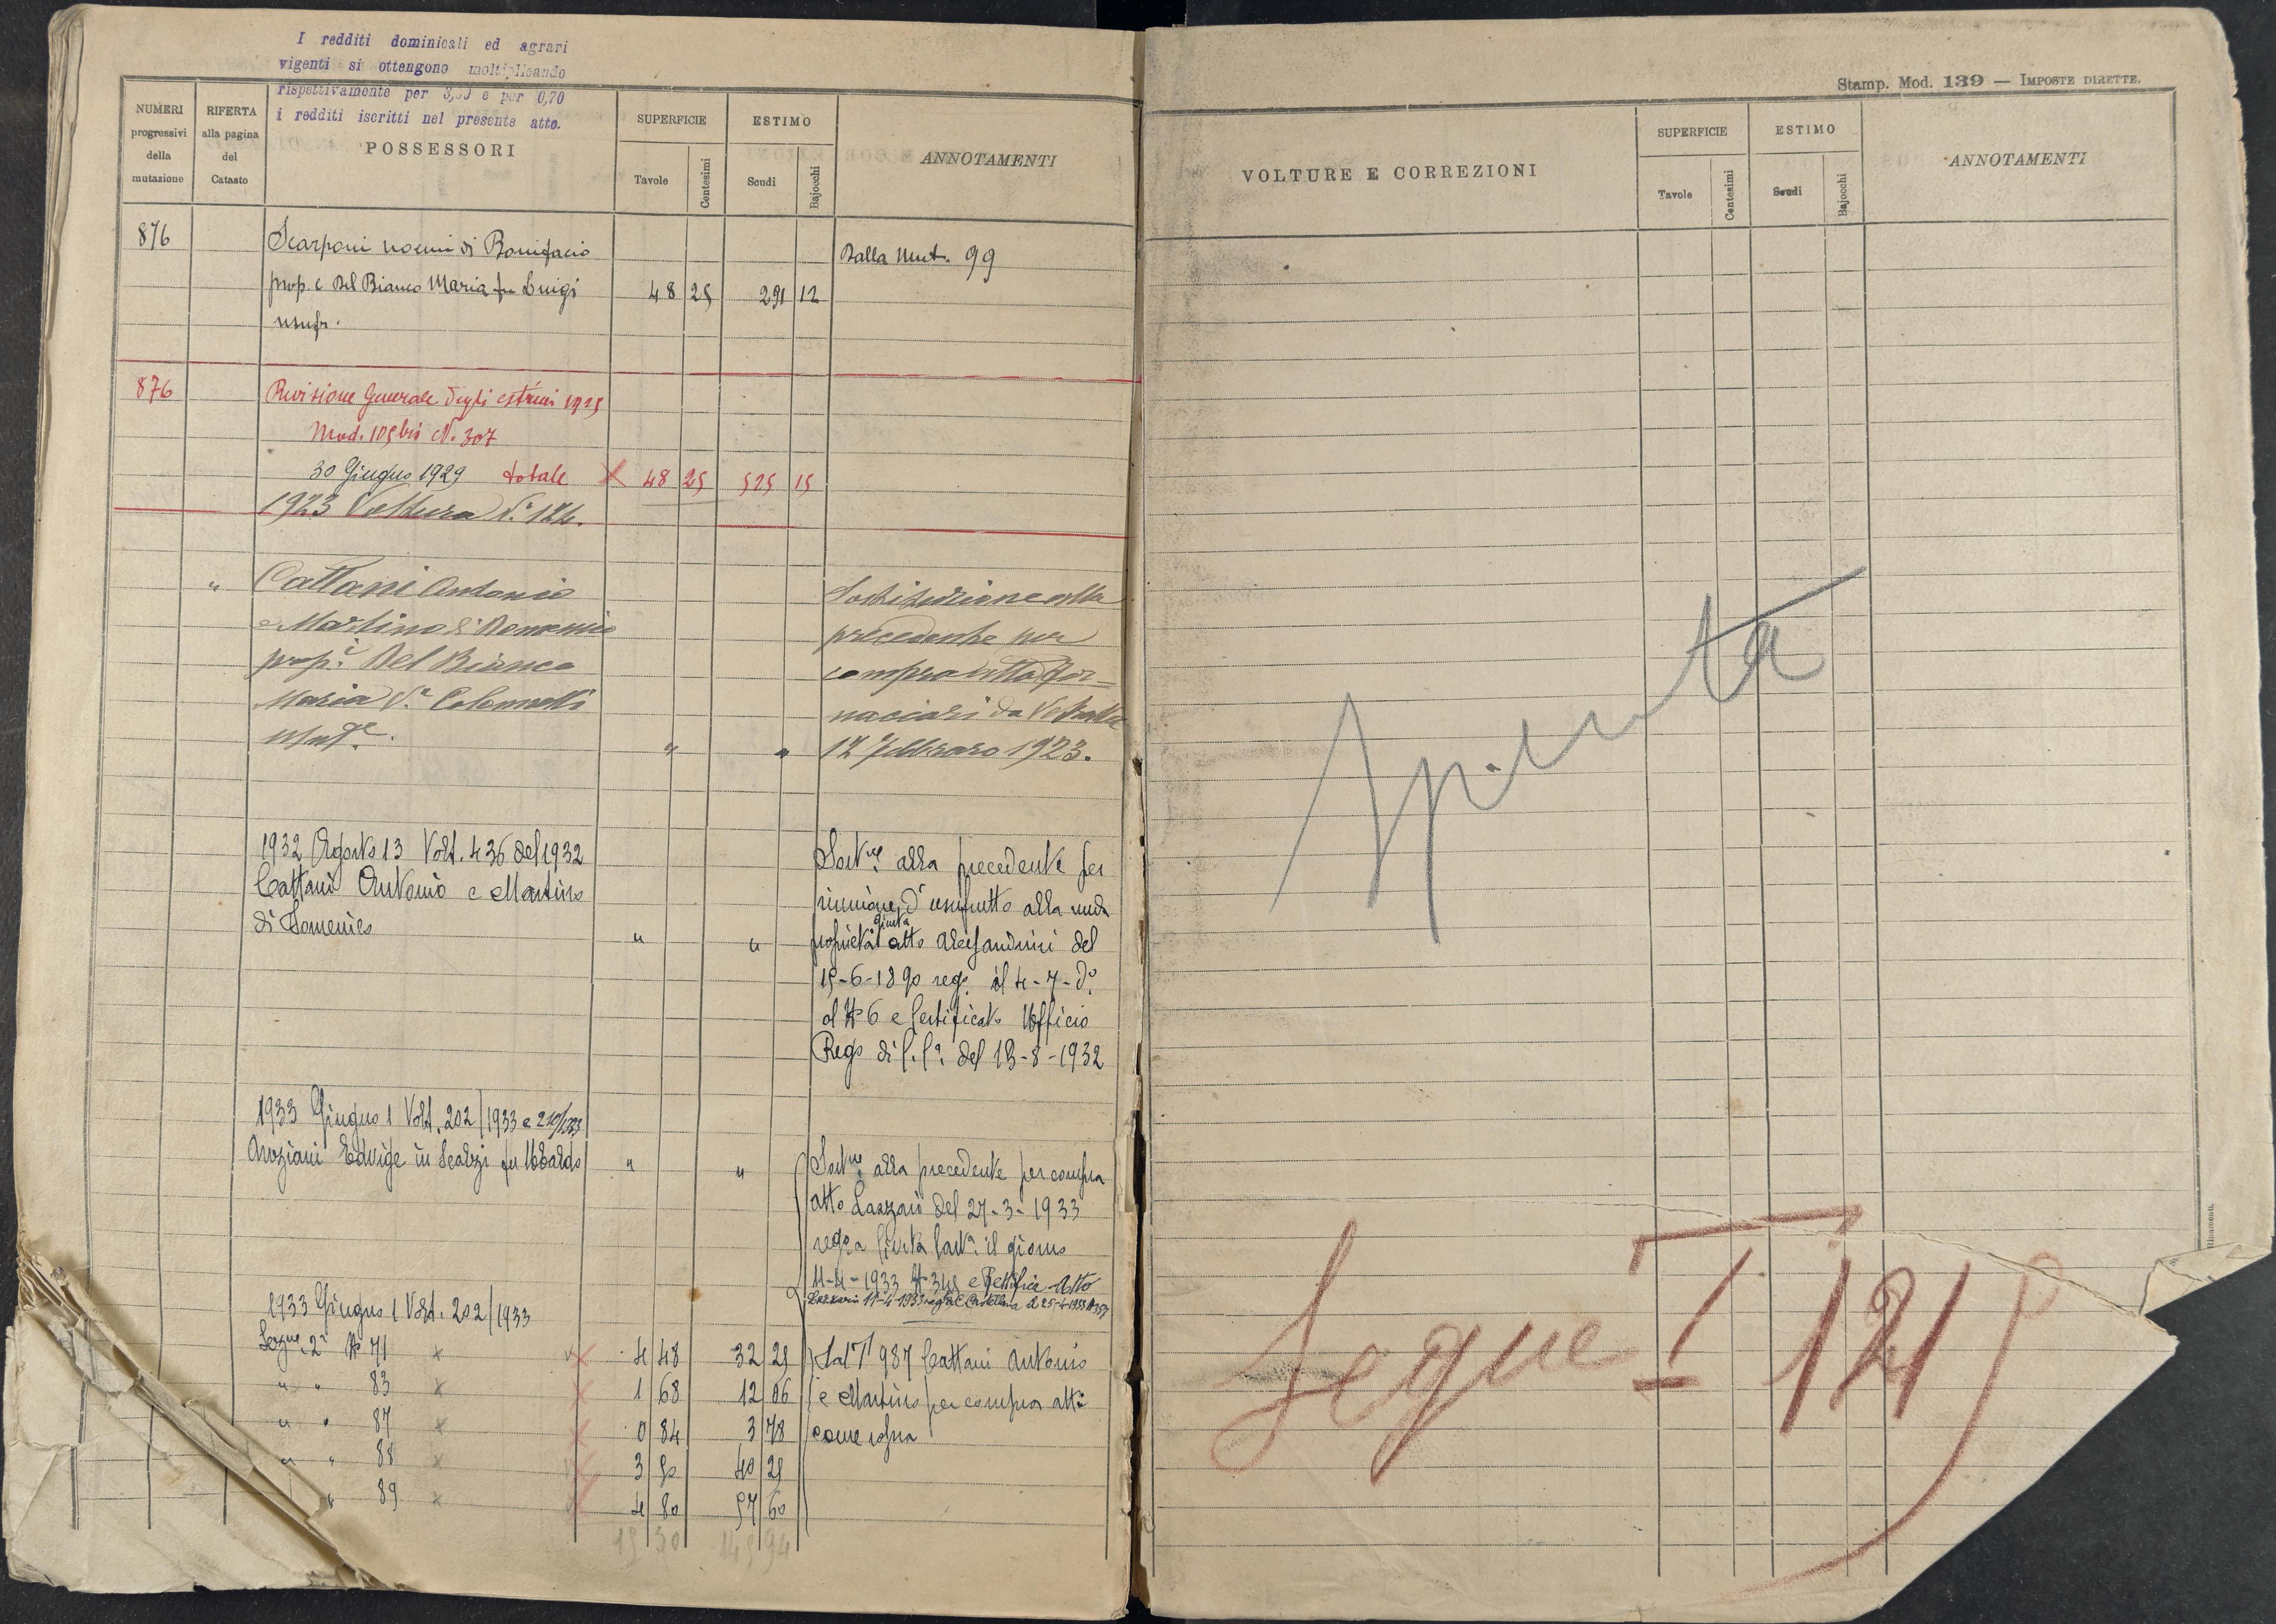 I redditi dominicali ed agrari
vigenti si ottengono moltiplicando
rispettivamente per 3,50 e per 0,70
i redditi iscritti nel presente atto.
NUMERI progressivi della mutazione
RIFERTA alla pagina del Catasto
POSSESSORI
SUPERFICIE
Tavole
Centesimi
ESTIMO
Scudi
Bajocchi
ANNOTAMENTI
876 Scarponi Noemi di Bonifacio Dalla Mut. 99
prop. e Del Bianco Maria fu Luigi 48 25 291 12
usufr.
876 Revisione Generale degli estimi 1925
Mod. 105 bis N. 307
30 Giugno 1929 totale 48 25 525 15
1923 Voltura N. 124.
" Cattani Antonio
e Martino di Domenico
prop.i Del Bianco
Maria V.a
usuf.e " "
Sostituzione alla
precedente per
compra atto For=
naciari da Vetralla
12 Febbraro 1923.
1932 Agosto 13 Volt. 436 del 1932
Cattani Antonio e Martino
di Domenico " "
Sost.ne alla precedente per
riunione d'usufrutto alla nuda
proprietà giusta atto Alessandrini del
15-6-1890 reg.o il 4-7-d.o
al N° 6 e Certificato Ufficio
Reg.o di C. C.a del 13-8-1932
1933 Giugno 1 Volt. 202/1933 e 210/1933
Anziani Edvige in Scalzi fu Ubaldo " "
Sost.ne alla precedente per compra
atto Lazzari del 27-3-1933
reg.o a Civita Cast.a il giorno
11-4-1933 N° 348 e Rettifica Atto
Lazzari 11-4-1933 reg.to C. Castellana il 25-4-1933 N° 357
1933 Giugno 1 Volt. 202/1933
Sez.ne 2a N° 71 x 4 48 32 25 Dal T 987 Cattani Antonio
" " 83 x 1 68 12 06 e Martino per compra atti
" " 87 x 0 84 3 78 come sopra
" " 88 x 3 50 40 25
" 89 x 4 80 57 60
15 30 145 94
Stamp. Mod. 139 — IMPOSTE DIRETTE.
VOLTURE E CORREZIONI
SUPERFICIE
Tavole
Centesimi
ESTIMO
Scudi
Bajocchi
ANNOTAMENTI
Spunta
Segue T 121